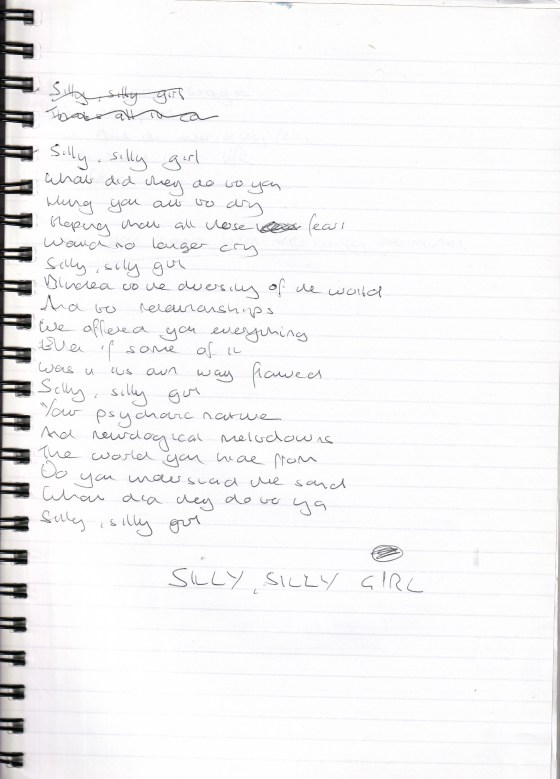 Silly, silly girl
Silly, silly girl
What did they do to you
Hung you out to dry
Hoping that all those fears
Would no longer cry
Silly, silly girl
Blinded to the diversity of the world
And to relationships
We offered you everything
Even if some of it
Was in its own way flawed
Silly, silly girl
Your psychotic nature
And neurological meltdowns
The world you hide from
Do you understand the sand
What did they do to ya
Silly, silly girl
SILLY, SILLY GIRL